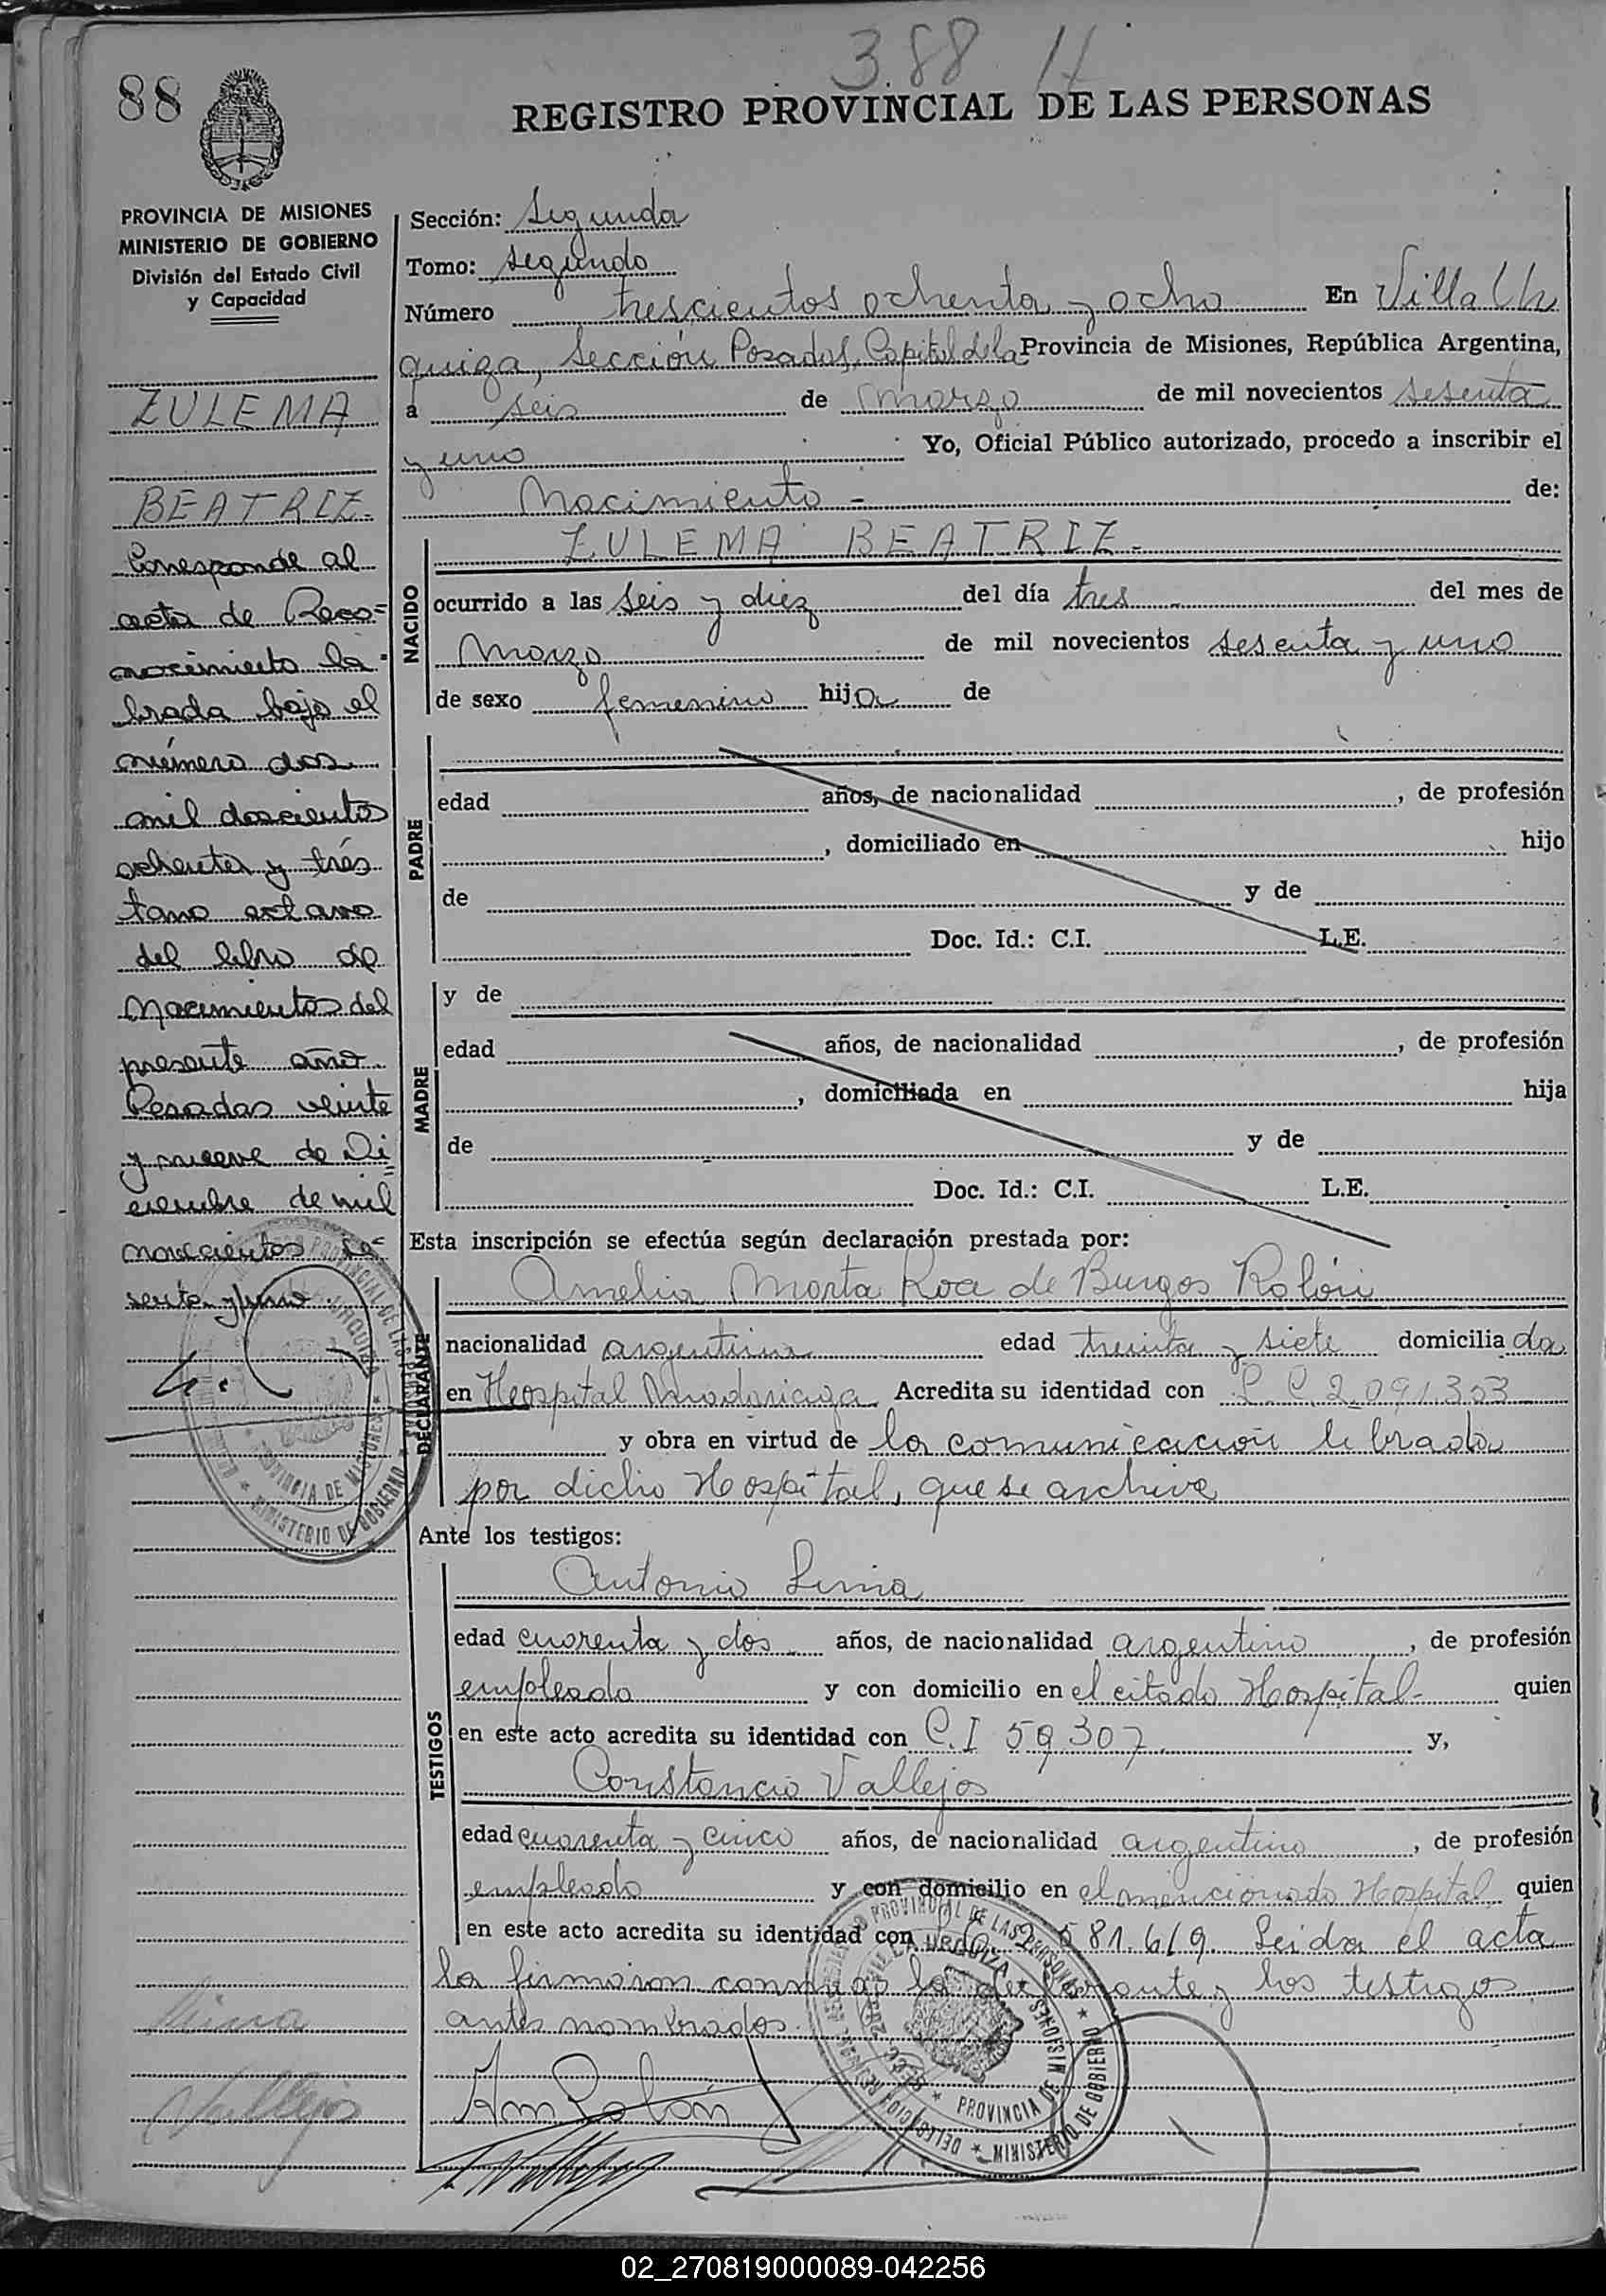 3.88
88
REGISTRO PROVINCIAL DE LAS PERSONAS
PROVINCIA DE MISIONES
MINISTERIO DE GOBIERNO
División del Estado Civil
y Capacidad
ZULEMA
BEATRIZ.
Corresponde al
acta de Reco=
nocimiento la-
brada bajo el
número dos
mil doscientos
ochenta y tres
tomo octavo
del libro de
Nacimientos del
presente año.
Posadas veinte
y nueve de Di=
ciembre de mil
novecientos se=
senta y uno
Sección: Segunda
Tomo: segundo
Número trescientos ochenta y ocho En Villa Ur
quiza, Sección Posadas, Capital de la Provincia de Misiones, República Argentina,
a seis de marzo de mil novecientos sesenta
y uno Yo, Oficial Público autorizado, procedo a inscribir el
Nacimiento - de:
NACIDO
ZULEMA BEATRIZ.-
ocurrido a las seis y diez del día tres del mes de
Marzo de mil novecientos sesenta y uno
de sexo femenino hija de
PADRE
edad años, de nacionalidad , de profesión
, domiciliado en hijo
de y de
Doc. Id.: C.I. L.E.
MADRE
y de
edad años, de nacionalidad , de profesión
, domiciliada en hija
de y de
Doc. Id.: C.I. L.E.
Esta inscripción se efectúa según declaración prestada por:
DECLARANTE
Amelia Marta Roa de Burgos Rolón
nacionalidad argentina edad treinta y siete domiciliada
en Hospital Madariaga Acredita su identidad con L C 2.091.353
y obra en virtud de la comunicación librada
por dicho Hospital, que se archiva
Ante los testigos:
TESTIGOS
Antonio Lima
edad cuarenta y dos años, de nacionalidad argentino , de profesión
empleado y con domicilio en el citado Hospital- quien
en este acto acredita su identidad con C.I 59.307 y,
Constancio Vallejos
edad cuarenta y cinco años, de nacionalidad argentino , de profesión
empleado y con domicilio en el mencionado Hospital quien
en este acto acredita su identidad con 581.619. Leida el acta
la firmaron conmigo la declarante y los testigos
antes nombrados.
Lima
Vallejos
Am Rolón
PROVINCIA DE MISIONES
MINISTERIO DE GOBIERNO
02_270819000089-042256